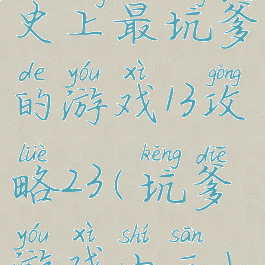 史上最坑爹
de yóu xì gōng
的游戏13攻
lüè kēng diē
略23(坑爹
yóu xì shí sān
游戏十三